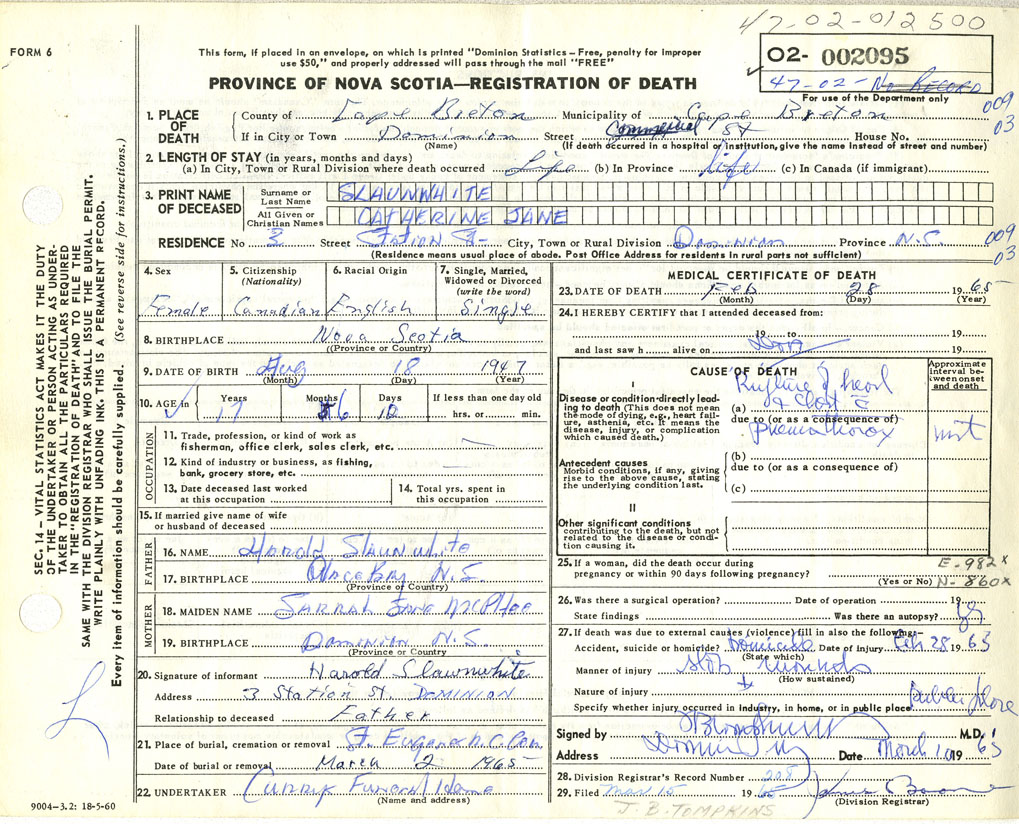 47-02-012500
FORM 6
This form, if placed in an envelope, on which is printed "Dominion Statistics – Free, penalty for improper
use $50," and properly addressed will pass through the mail "FREE"
02- 002095
PROVINCE OF NOVA SCOTIA—REGISTRATION OF DEATH
47-02- No RECORD
For use of the Department only
009
03
1. PLACE OF DEATH
County of Cape Breton Municipality of Cape Breton
If in City or Town Dominion Street Commercial St House No.
(Name) (If death occurred in a hospital or institution, give the name instead of street and number)
2. LENGTH OF STAY (in years, months and days)
(a) In City, Town or Rural Division where death occurred Life (b) In Province life (c) In Canada (if immigrant)
3. PRINT NAME OF DECEASED
Surname or Last Name SLAUNWHITE
All Given or Christian Names CATHERINE JANE
RESIDENCE No 3 Street Station St- City, Town or Rural Division Dominion Province N.S.
009
03
(Residence means usual place of abode. Post Office Address for residents in rural parts not sufficient)
4. Sex
Female
5. Citizenship
(Nationality)
Canadian
6. Racial Origin
English
7. Single, Married, Widowed or Divorced
(write the word)
Single
8. BIRTHPLACE Nova Scotia
(Province or Country)
9. DATE OF BIRTH Aug 18 1947
(Month) (Day) (Year)
10. AGE in
Years Months Days If less than one day old
17 6 10 hrs. or min.
OCCUPATION
11. Trade, profession, or kind of work as
fisherman, office clerk, sales clerk, etc.
12. Kind of industry or business, as fishing,
bank, grocery store, etc.
13. Date deceased last worked
at this occupation
14. Total yrs. spent in
this occupation
15. If married give name of wife
or husband of deceased
FATHER
16. NAME Harold Slaunwhite
17. BIRTHPLACE Glace Bay N.S.
(Province or Country)
MOTHER
18. MAIDEN NAME Sarrah Jane McPhee
19. BIRTHPLACE Dominion N.S.
(Province or Country)
20. Signature of informant Harold Slawnwhite
Address 3 Station St. DOMINION
Relationship to deceased Father
21. Place of burial, cremation or removal St. Eugene R.C. Cem
Date of burial or removal March 2 1965
22. UNDERTAKER Curry Funeral Home
(Name and address)
MEDICAL CERTIFICATE OF DEATH
23. DATE OF DEATH Feb 28 1965
(Month) (Day) (Year)
24. I HEREBY CERTIFY that I attended deceased from:
19 to 19
and last saw h alive on 19
CAUSE OF DEATH
Approximate interval between onset and death
I
Disease or condition directly leading to death (This does not mean the mode of dying, e.g., heart failure, asthenia, etc. It means the disease, injury, or complication which caused death.)
(a) Rupture of heart
& Chest
due to (or as a consequence of)
(b)
due to (or as a consequence of)
(c)
Antecedent causes
Morbid conditions, if any, giving rise to the above cause, stating the underlying condition last.
II
Other significant conditions
contributing to the death, but not related to the disease or condition causing it.
25. If a woman, did the death occur during
pregnancy or within 90 days following pregnancy?
(Yes or No)
E-982 x
N-860x
26. Was there a surgical operation? Date of operation 19
State findings Was there an autopsy? yes
27. If death was due to external causes (violence) fill in also the following—
Accident, suicide or homicide? Homicide Date of injury Feb 28 1965
(State which)
Manner of injury stab wounds
(How sustained)
Nature of injury
Specify whether injury occurred in industry, in home, or in public place Public place
Signed by M.D.
Address Dominion Date March 10 1965
28. Division Registrar's Record Number 208
29. Filed Mar 15 1965
(Division Registrar)
J. B. TOMPKINS
9004-3.2: 18-5-60
SEC. 14 – VITAL STATISTICS ACT MAKES IT THE DUTY
OF THE UNDERTAKER OR PERSON ACTING AS UNDER-
TAKER TO OBTAIN ALL THE PARTICULARS REQUIRED
IN THE "REGISTRATION OF DEATH" AND TO FILE THE
SAME WITH THE DIVISION REGISTRAR WHO SHALL ISSUE THE BURIAL PERMIT.
WRITE PLAINLY WITH UNFADING INK. THIS IS A PERMANENT RECORD.
Every item of information should be carefully supplied. (See reverse side for instructions.)